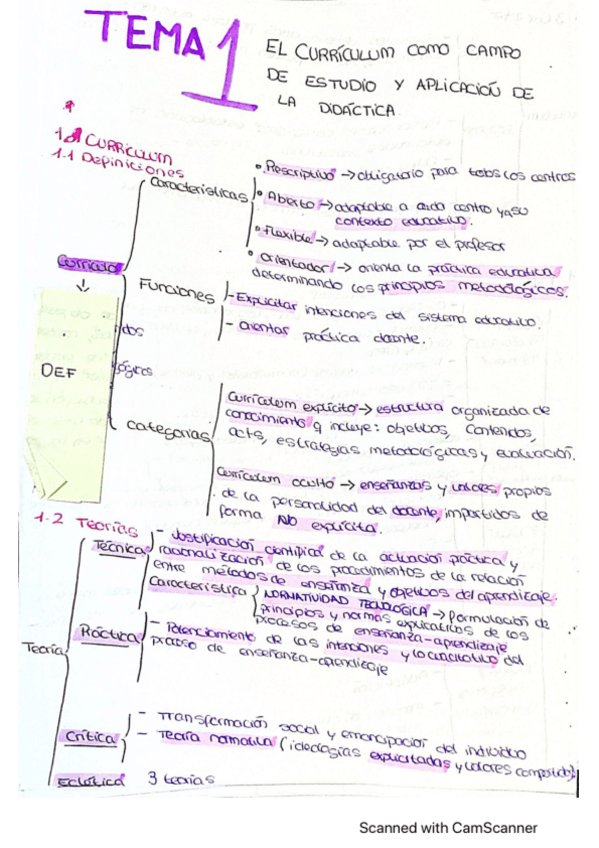 TEMA 1
EL CURRÍCULUM COMO CAMPO
DE ESTUDIO Y APLICACIÓN DE
LA DIDÁCTICA.
CURRÍCULUM
1.1 Definiciones
Características
• Prescriptivo → obligatorio para todos los centros
• Abierto → adaptable a cada centro y a su
contexto educativo.
• Flexible → adaptable por el profesor
• Orientador → orienta la práctica educativa
determinando los principios metodológicos.
Currículo
↓
DEF
Funciones
- Explicitar intenciones del sistema educativo.
- Orientar práctica docente.
dos
lógicos
Categorías
Currículum explícito → estructura organizada de
conocimiento q incluye: objetivos, contenidos,
acts, estrategias metodológicas y evaluación.
Currículum oculto → enseñanzas y valores propios
de la personalidad del docente, impartidos de
forma NO explícita.
1.2 Teorías
Teoría
Técnica
- Justificación científica de la actuación práctica y
racionalización de los procedimientos de la relación
entre métodos de enseñanza y objetivos del aprendizaje.
Característica
NORMATIVIDAD TECNOLÓGICA → formulación de
principios y normas explicativos de los
procesos de enseñanza-aprendizaje
Práctica
- Potenciamiento de las intenciones y lo cualitativo del
proceso de enseñanza-aprendizaje
Crítica
- Transformación social y emancipación del individuo
- Teoría normativa (ideologías explicitadas y valores compartidos)
Ecléctica 3 teorías
Scanned with CamScanner